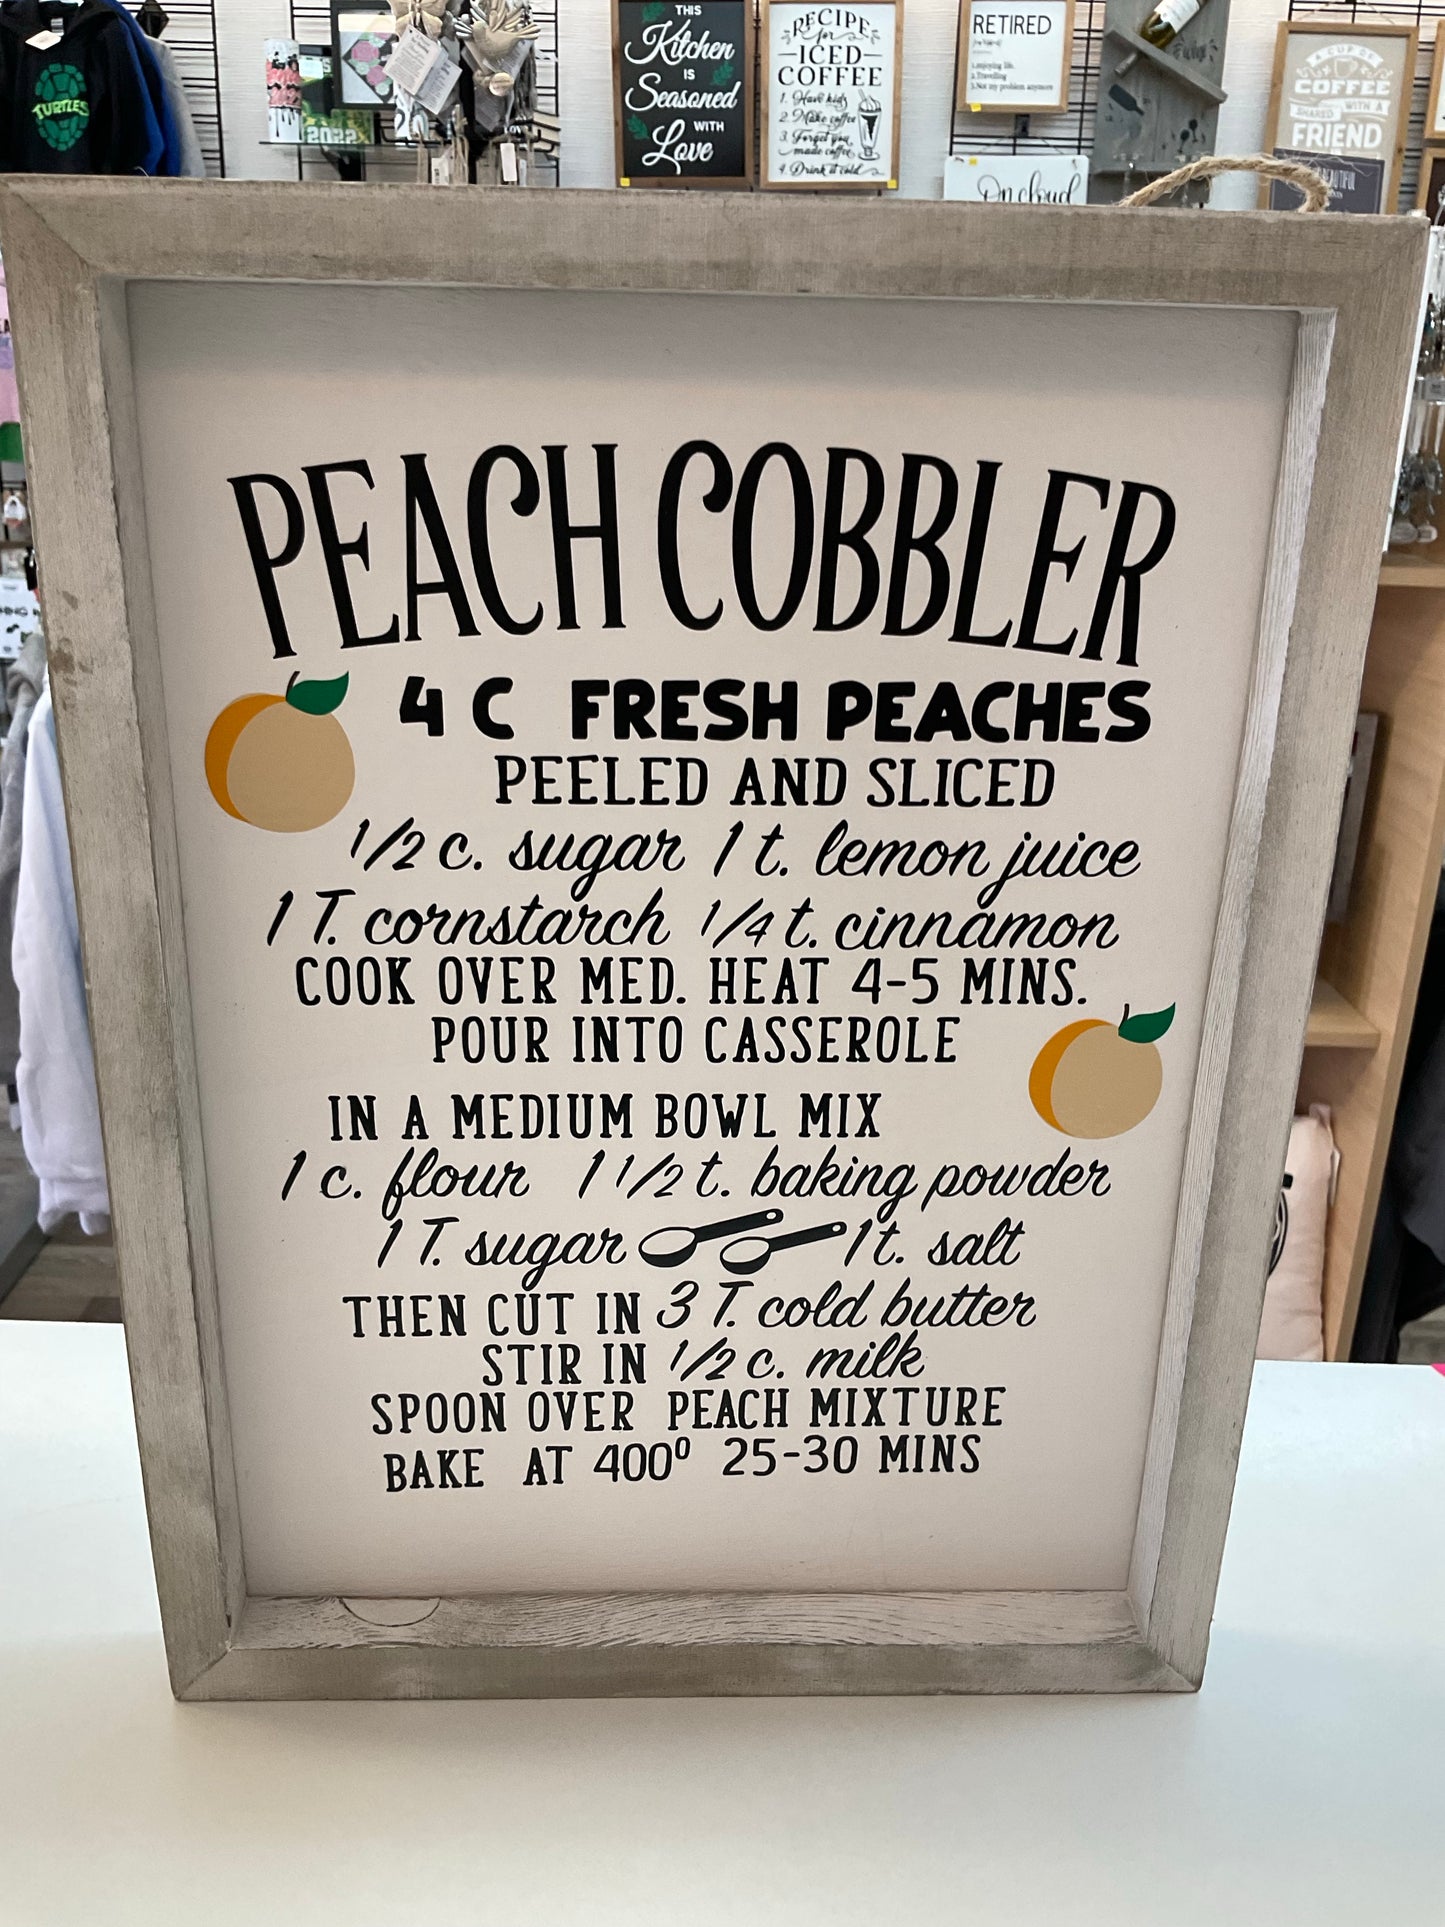 TURTLES
2022
THIS
Kitchen
IS
Seasoned
WITH
Love
RECIPE
for
ICED
COFFEE
1. Have kids
2. Make coffee
3. Forget you
made coffee
4. Drink it cold
RETIRED
1.enjoying life.
2.Travelling
3.Not my problem anymore
On cloud
A CUP OF
COFFEE
SHARED WITH A
FRIEND
PEACH COBBLER
4 C FRESH PEACHES
PEELED AND SLICED
1/2 c. sugar 1 t. lemon juice
1 T. cornstarch 1/4 t. cinnamon
COOK OVER MED. HEAT 4-5 MINS.
POUR INTO CASSEROLE
IN A MEDIUM BOWL MIX
1 c. flour 1 1/2 t. baking powder
1 T. sugar 1 t. salt
THEN CUT IN 3 T. cold butter
STIR IN 1/2 c. milk
SPOON OVER PEACH MIXTURE
BAKE AT 400° 25-30 MINS